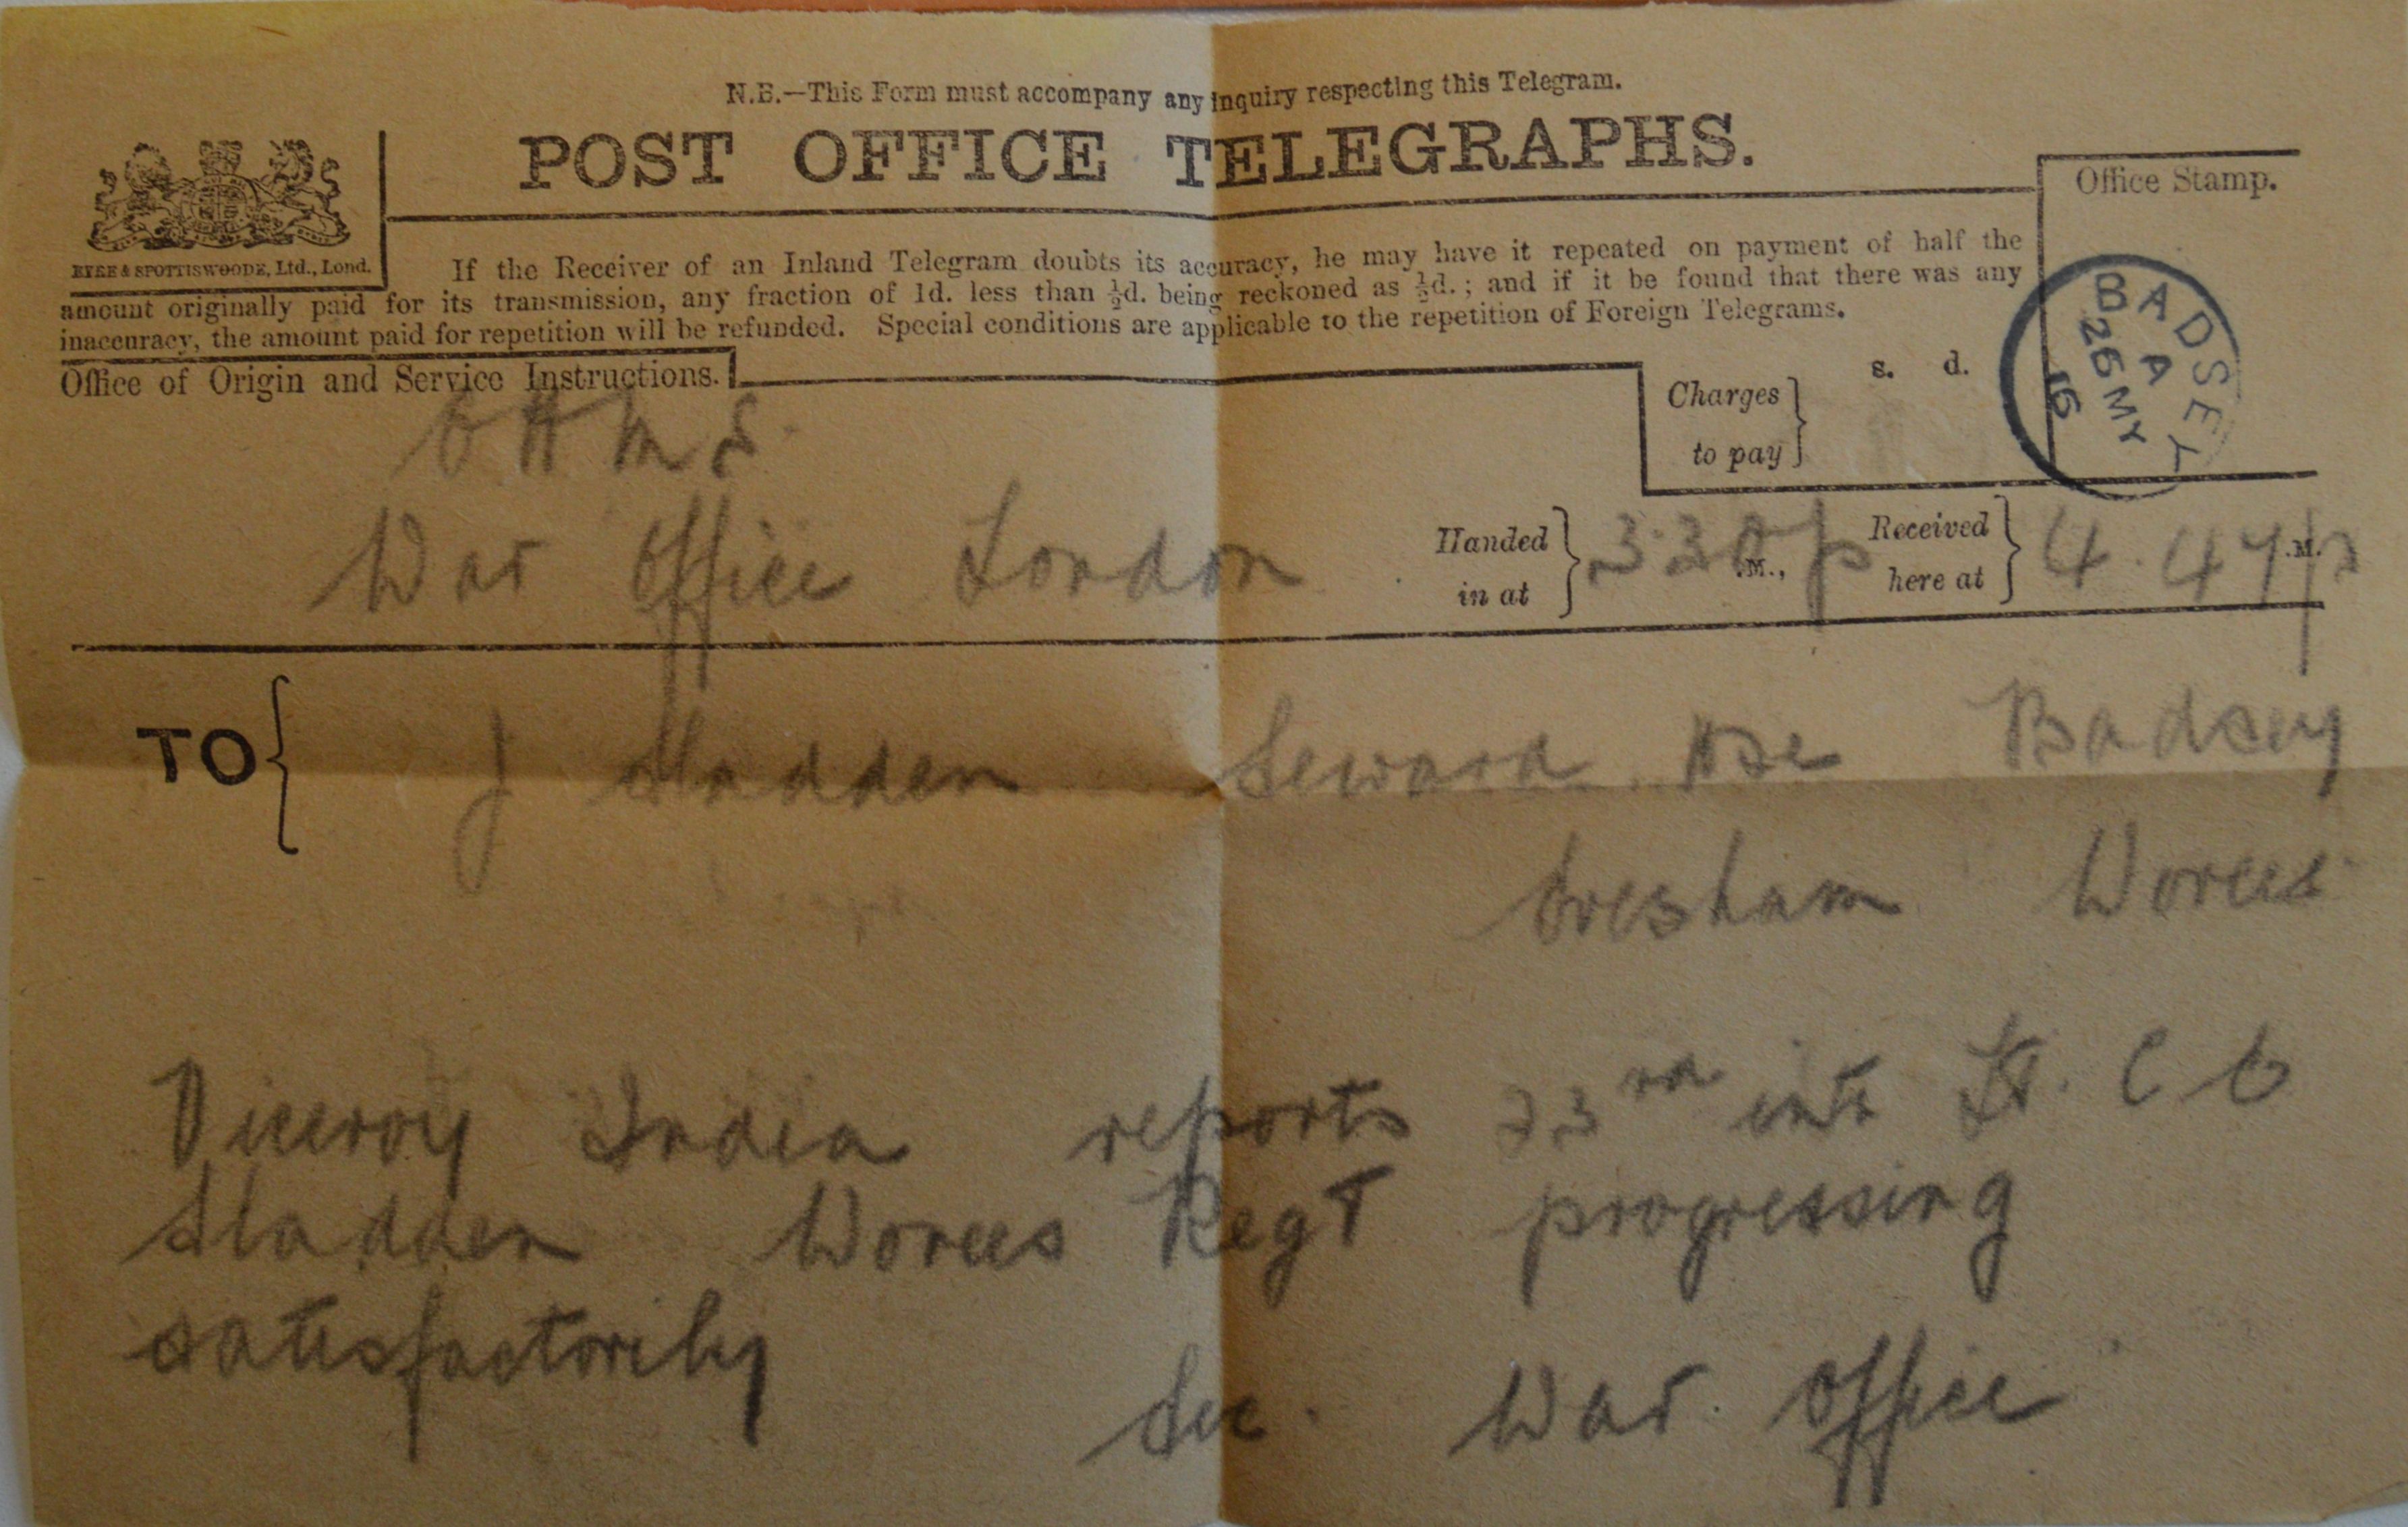 N.B.—This Form must accompany any inquiry respecting this Telegram.
POST OFFICE TELEGRAPHS.
Office Stamp.
EYRE & SPOTTISWOODE, Ltd., Lond.
If the Receiver of an Inland Telegram doubts its accuracy, he may have it repeated on payment of half the
amount originally paid for its transmission, any fraction of 1d. less than ½d. being reckoned as ½d.; and if it be found that there was any
inaccuracy, the amount paid for repetition will be refunded. Special conditions are applicable to the repetition of Foreign Telegrams.
BADSEY
A
26 MY
16
Office of Origin and Service Instructions.
s. d.
Charges to pay
O H M S
War Office London
Handed in at 3.30 p .M., Received here at 4.47 p .M.
TO J Sladden Seward Hse Badsey
Evesham Worces
Viceroy India reports 23rd inst Lt. C E
Sladden Worces Regt progressing
satisfactorily
Sec. War. Office